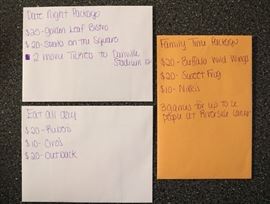 Date Night Package
$25-Golden Leaf Bistro
$20-Steaks on the Square
2 movie Tickets to Danville
Stadium 12
Eat all day
$20-Ruben's
$10-Ciro's
$20-Outback
Family Time Package
$20-Buffalo Wild Wings
$20-Sweet Frog
$10-
3 games for up to 6
people at Riverside Lanes